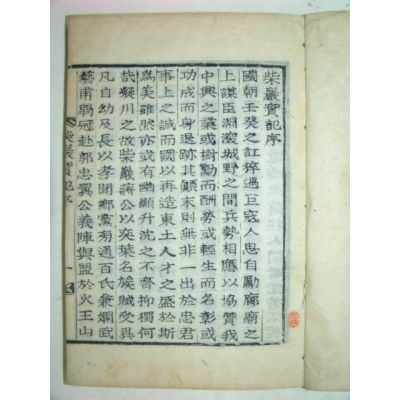 柴巖實記序
國朝壬癸之訌猝遇巨寇人思自勵廊廟之
上謀臣淵邃城野之間兵勢相應以協贊我
中興之業或樹勳而酬勞或輕生而名彰或
功成而身退跡其顛末則無非一出於忠君
事上之誠而國以再造東土人才之盛於斯
爲美雖然亦或有幽顯升沈之不齊抑獨何
哉凝川之故柴巖蔣公以奕葉名族貳受異
凡自幼及長以孝聞鄕黨菊通百氏兼嫺武
藝甫弱冠赴郭忠翼公義陣與盟於火王山
柴巖實記序
一